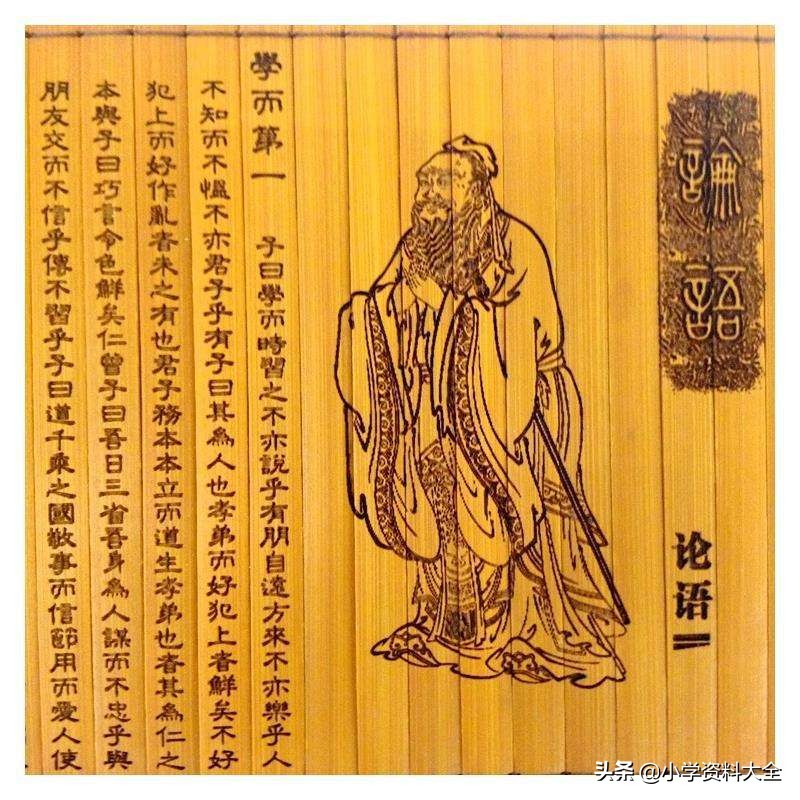 論語
论语
學而第一 子曰學而時習之不亦說乎有朋自遠方來不亦樂乎人
不知而不慍不亦君子乎有子曰其為人也孝弟而好犯上者鮮矣不好
犯上而好作亂者未之有也君子務本本立而道生孝弟也者其為仁之
本與子曰巧言令色鮮矣仁曾子曰吾日三省吾身為人謀而不忠乎與
朋友交而不信乎傳不習乎子曰道千乘之國敬事而信節用而愛人使
头条 @小学资料大全